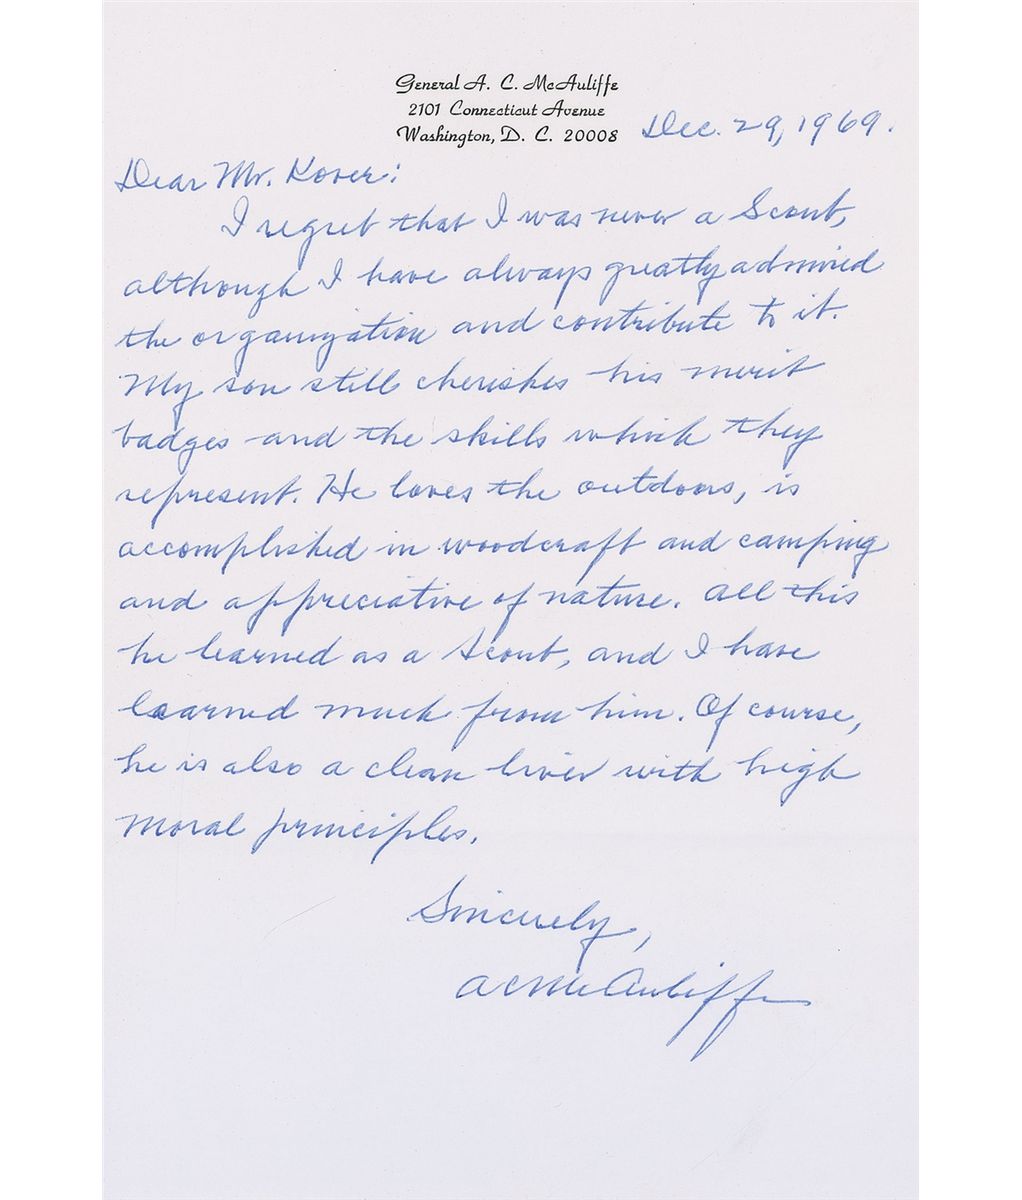 General A. C. McAuliffe
2101 Connecticut Avenue
Washington, D. C. 20008
Dec. 29, 1969.
Dear Mr. Kover:
I regret that I was never a Scout,
although I have always greatly admired
the organization and contribute to it.
My son still cherishes his merit
badges and the skills which they
represent. He loves the outdoors, is
accomplished in woodcraft and camping
and appreciative of nature. All this
he learned as a Scout, and I have
learned much from him. Of course,
he is also a clean liver with high
moral principles.
Sincerely,
A C McAuliffe